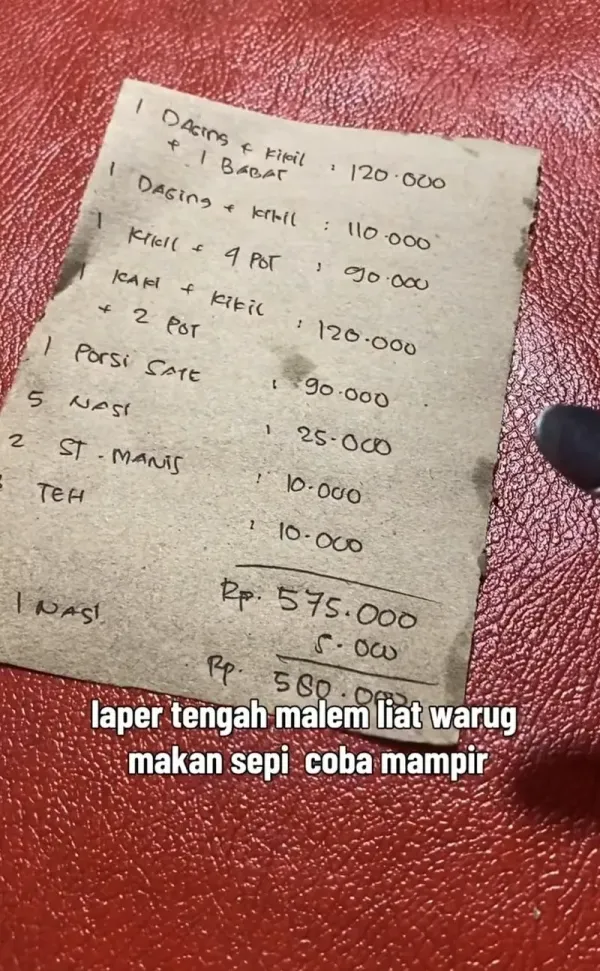 1 DAGING + KIKIL : 120.000
+ 1 BABAT
1 DAGING + KIKIL : 110.000
1 KIKIL + 4 POT : 90.000
1 KAKI + KIKIL : 120.000
+ 2 POT
1 PORSI SATE : 90.000
5 NASI : 25.000
2 ST-MANIS : 10.000
TEH : 10.000
Rp. 575.000
1 NASI 5.000
Rp. 580.000
laper tengah malem liat warug
makan sepi coba mampir